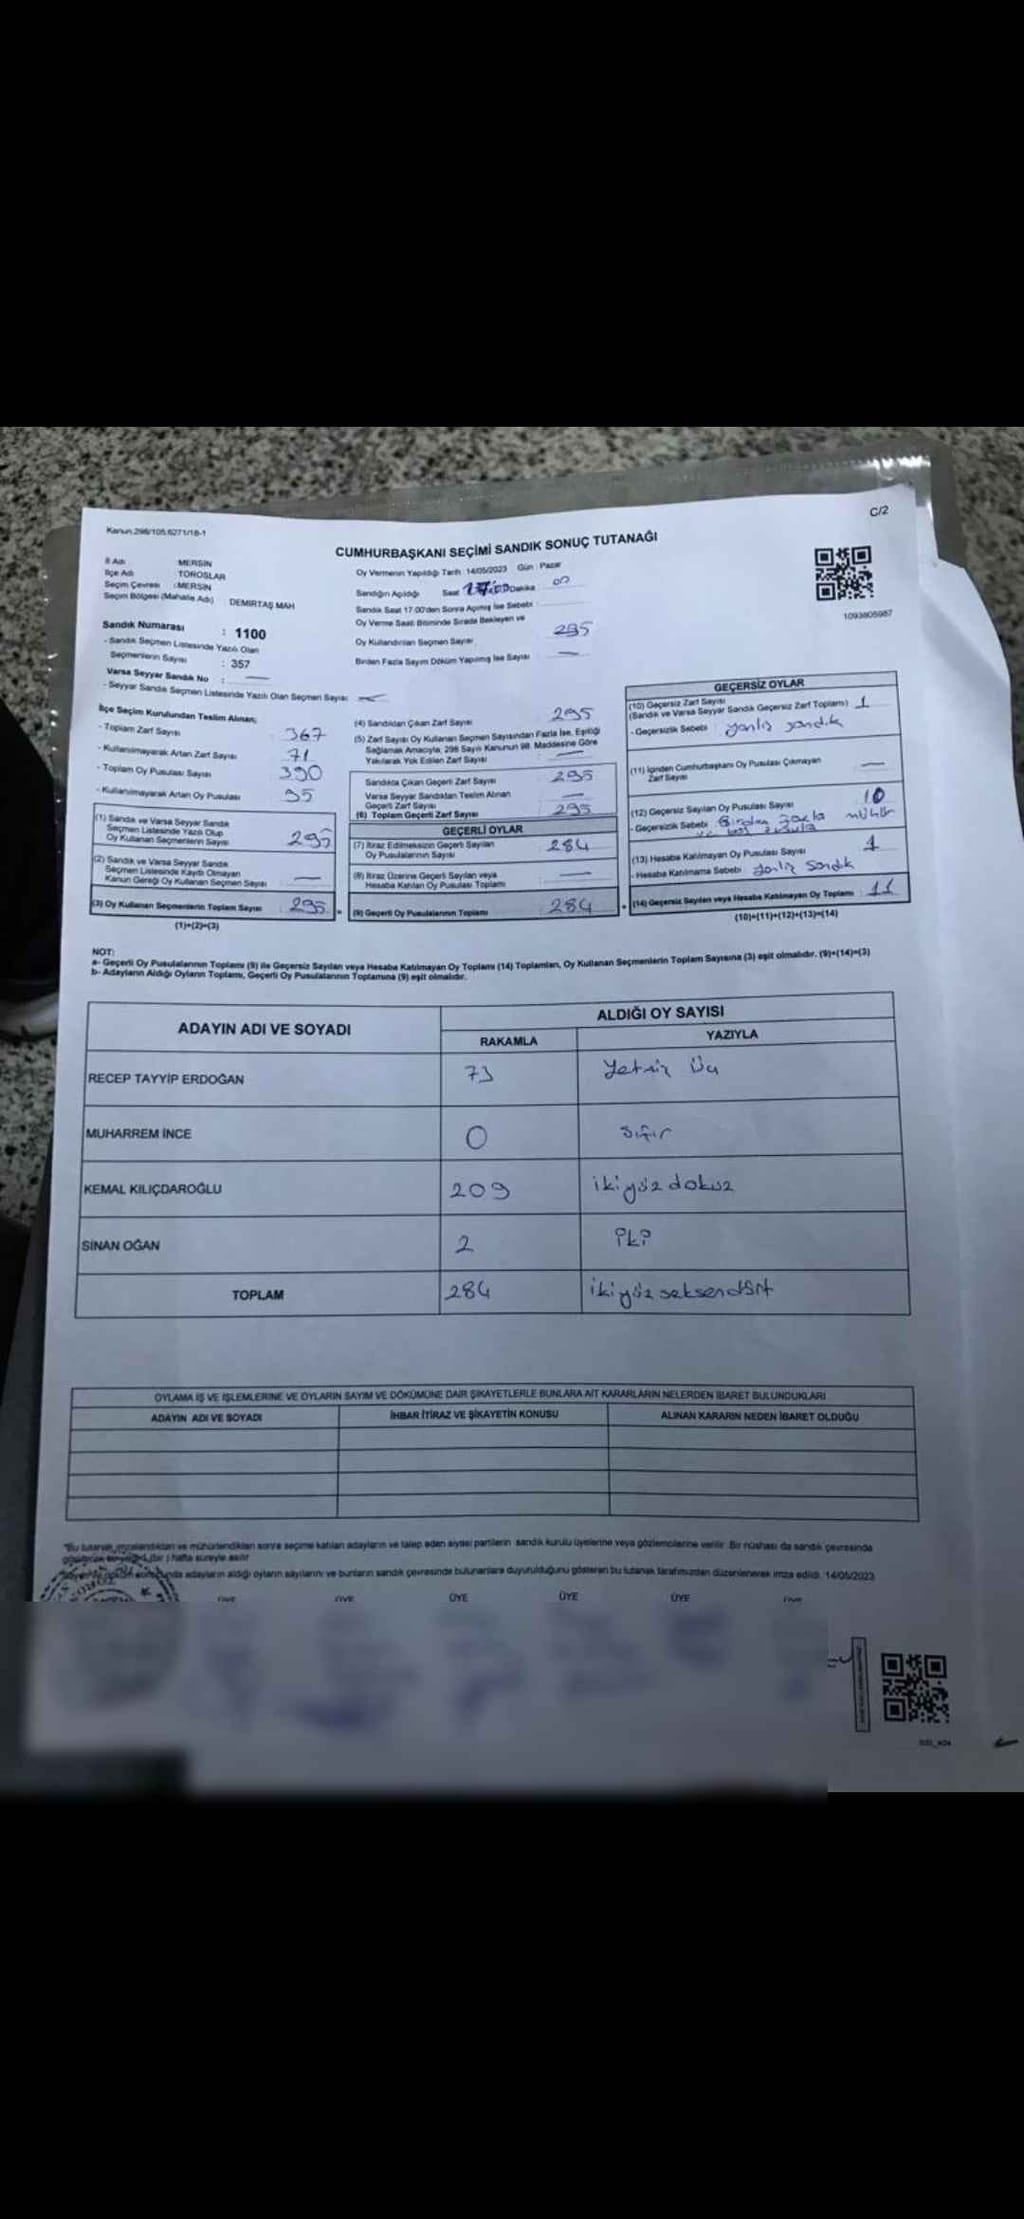 C/2
Kanun 298/105.6271/18-1
CUMHURBAŞKANI SEÇİMİ SANDIK SONUÇ TUTANAĞI
İl Adı : MERSİN
İlçe Adı : TOROSLAR
Seçim Çevresi : MERSİN
Seçim Bölgesi (Mahalle Adı) : DEMİRTAŞ MAH
Sandık Numarası : 1100
- Sandık Seçmen Listesinde Yazılı Olan
Seçmenlerin Sayısı : 357
Varsa Seyyar Sandık No : —
- Seyyar Sandık Seçmen Listesinde Yazılı Olan Seçmen Sayısı: —
Oy Vermenin Yapıldığı Tarih : 14/05/2023 Gün : Pazar
Sandığın Açıldığı Saat Dakika :
Sandık Saat 17.00'den Sonra Açılmış İse Sebebi :
Oy Verme Saati Bitiminde Sırada Bekleyen ve
Oy Kullandırılan Seçmen Sayısı 295
Birden Fazla Sayım Döküm Yapılmış İse Sayısı —
1093805987
İlçe Seçim Kurulundan Teslim Alınan;
- Toplam Zarf Sayısı 367
- Kullanılmayarak Artan Zarf Sayısı 71
- Toplam Oy Pusulası Sayısı 390
- Kullanılmayarak Artan Oy Pusulası 95
(1) Sandık ve Varsa Seyyar Sandık
Seçmen Listesinde Yazılı Olup
Oy Kullanan Seçmenlerin Sayısı 295
(2) Sandık ve Varsa Seyyar Sandık
Seçmen Listesinde Kayıtlı Olmayan
Kanun Gereği Oy Kullanan Seçmen Sayısı —
(3) Oy Kullanan Seçmenlerin Toplam Sayısı 295
(1)+(2)=(3)
(4) Sandıktan Çıkan Zarf Sayısı 295
(5) Zarf Sayısı Oy Kullanan Seçmen Sayısından Fazla İse, Eşitliği
Sağlamak Amacıyla, 298 Sayılı Kanunun 98. Maddesine Göre
Yakılarak Yok Edilen Zarf Sayısı —
Sandıkta Çıkan Geçerli Zarf Sayısı 295
Varsa Seyyar Sandıktan Teslim Alınan
Geçerli Zarf Sayısı —
(6) Toplam Geçerli Zarf Sayısı 295
GEÇERLİ OYLAR
(7) İtiraz Edilmeksizin Geçerli Sayılan
Oy Pusulalarının Sayısı 284
(8) İtiraz Üzerine Geçerli Sayılan veya
Hesaba Katılan Oy Pusulası Toplamı —
(9) Geçerli Oy Pusulalarının Toplamı 284
GEÇERSİZ OYLAR
(10) Geçersiz Zarf Sayısı
(Sandık ve Varsa Seyyar Sandık Geçersiz Zarf Toplamı) 1
- Geçersizlik Sebebi : yanlış sandık
(11) İçinden Cumhurbaşkanı Oy Pusulası Çıkmayan
Zarf Sayısı —
(12) Geçersiz Sayılan Oy Pusulası Sayısı 10
- Geçersizlik Sebebi Birden fazla mühür
ve boş pusula
(13) Hesaba Katılmayan Oy Pusulası Sayısı 1
- Hesaba Katılmama Sebebi yanlış sandık
(14) Geçersiz Sayılan veya Hesaba Katılmayan Oy Toplamı 11
(10)+(11)+(12)+(13)=(14)
NOT:
a- Geçerli Oy Pusulalarının Toplamı (9) ile Geçersiz Sayılan veya Hesaba Katılmayan Oy Toplamı (14) Toplamları, Oy Kullanan Seçmenlerin Toplam Sayısına (3) eşit olmalıdır. (9)+(14)=(3)
b- Adayların Aldığı Oyların Toplamı, Geçerli Oy Pusulalarının Toplamına (9) eşit olmalıdır.
ADAYIN ADI VE SOYADI
ALDIĞI OY SAYISI
RAKAMLA YAZIYLA
RECEP TAYYİP ERDOĞAN 73 Yetmiş Üç
MUHARREM İNCE 0 Sıfır
KEMAL KILIÇDAROĞLU 209 ikiyüzdokuz
SİNAN OĞAN 2 iki
TOPLAM 284 ikiyüzseksendört
OYLAMA İŞ VE İŞLEMLERİNE VE OYLARIN SAYIM VE DÖKÜMÜNE DAİR ŞİKAYETLERLE BUNLARA AİT KARARLARIN NELERDEN İBARET BULUNDUKLARI
ADAYIN ADI VE SOYADI İHBAR İTİRAZ VE ŞİKAYETİN KONUSU ALINAN KARARIN NEDEN İBARET OLDUĞU
"Bu tutanak, imzalandıktan ve mühürlendikten sonra seçime katılan adayların ve talep eden siyasi partilerin sandık kurulu üyelerine veya gözlemcilerine verilir. Bir nüshası da sandık çevresinde
(bir) hafta süreyle asılır
adayların aldığı oyların sayılarını ve bunların sandık çevresinde bulunanlara duyurulduğunu gösteren bu tutanak tarafımızdan düzenlenerek imza edildi. 14/05/2023
ÜYE ÜYE ÜYE ÜYE ÜYE ÜYE